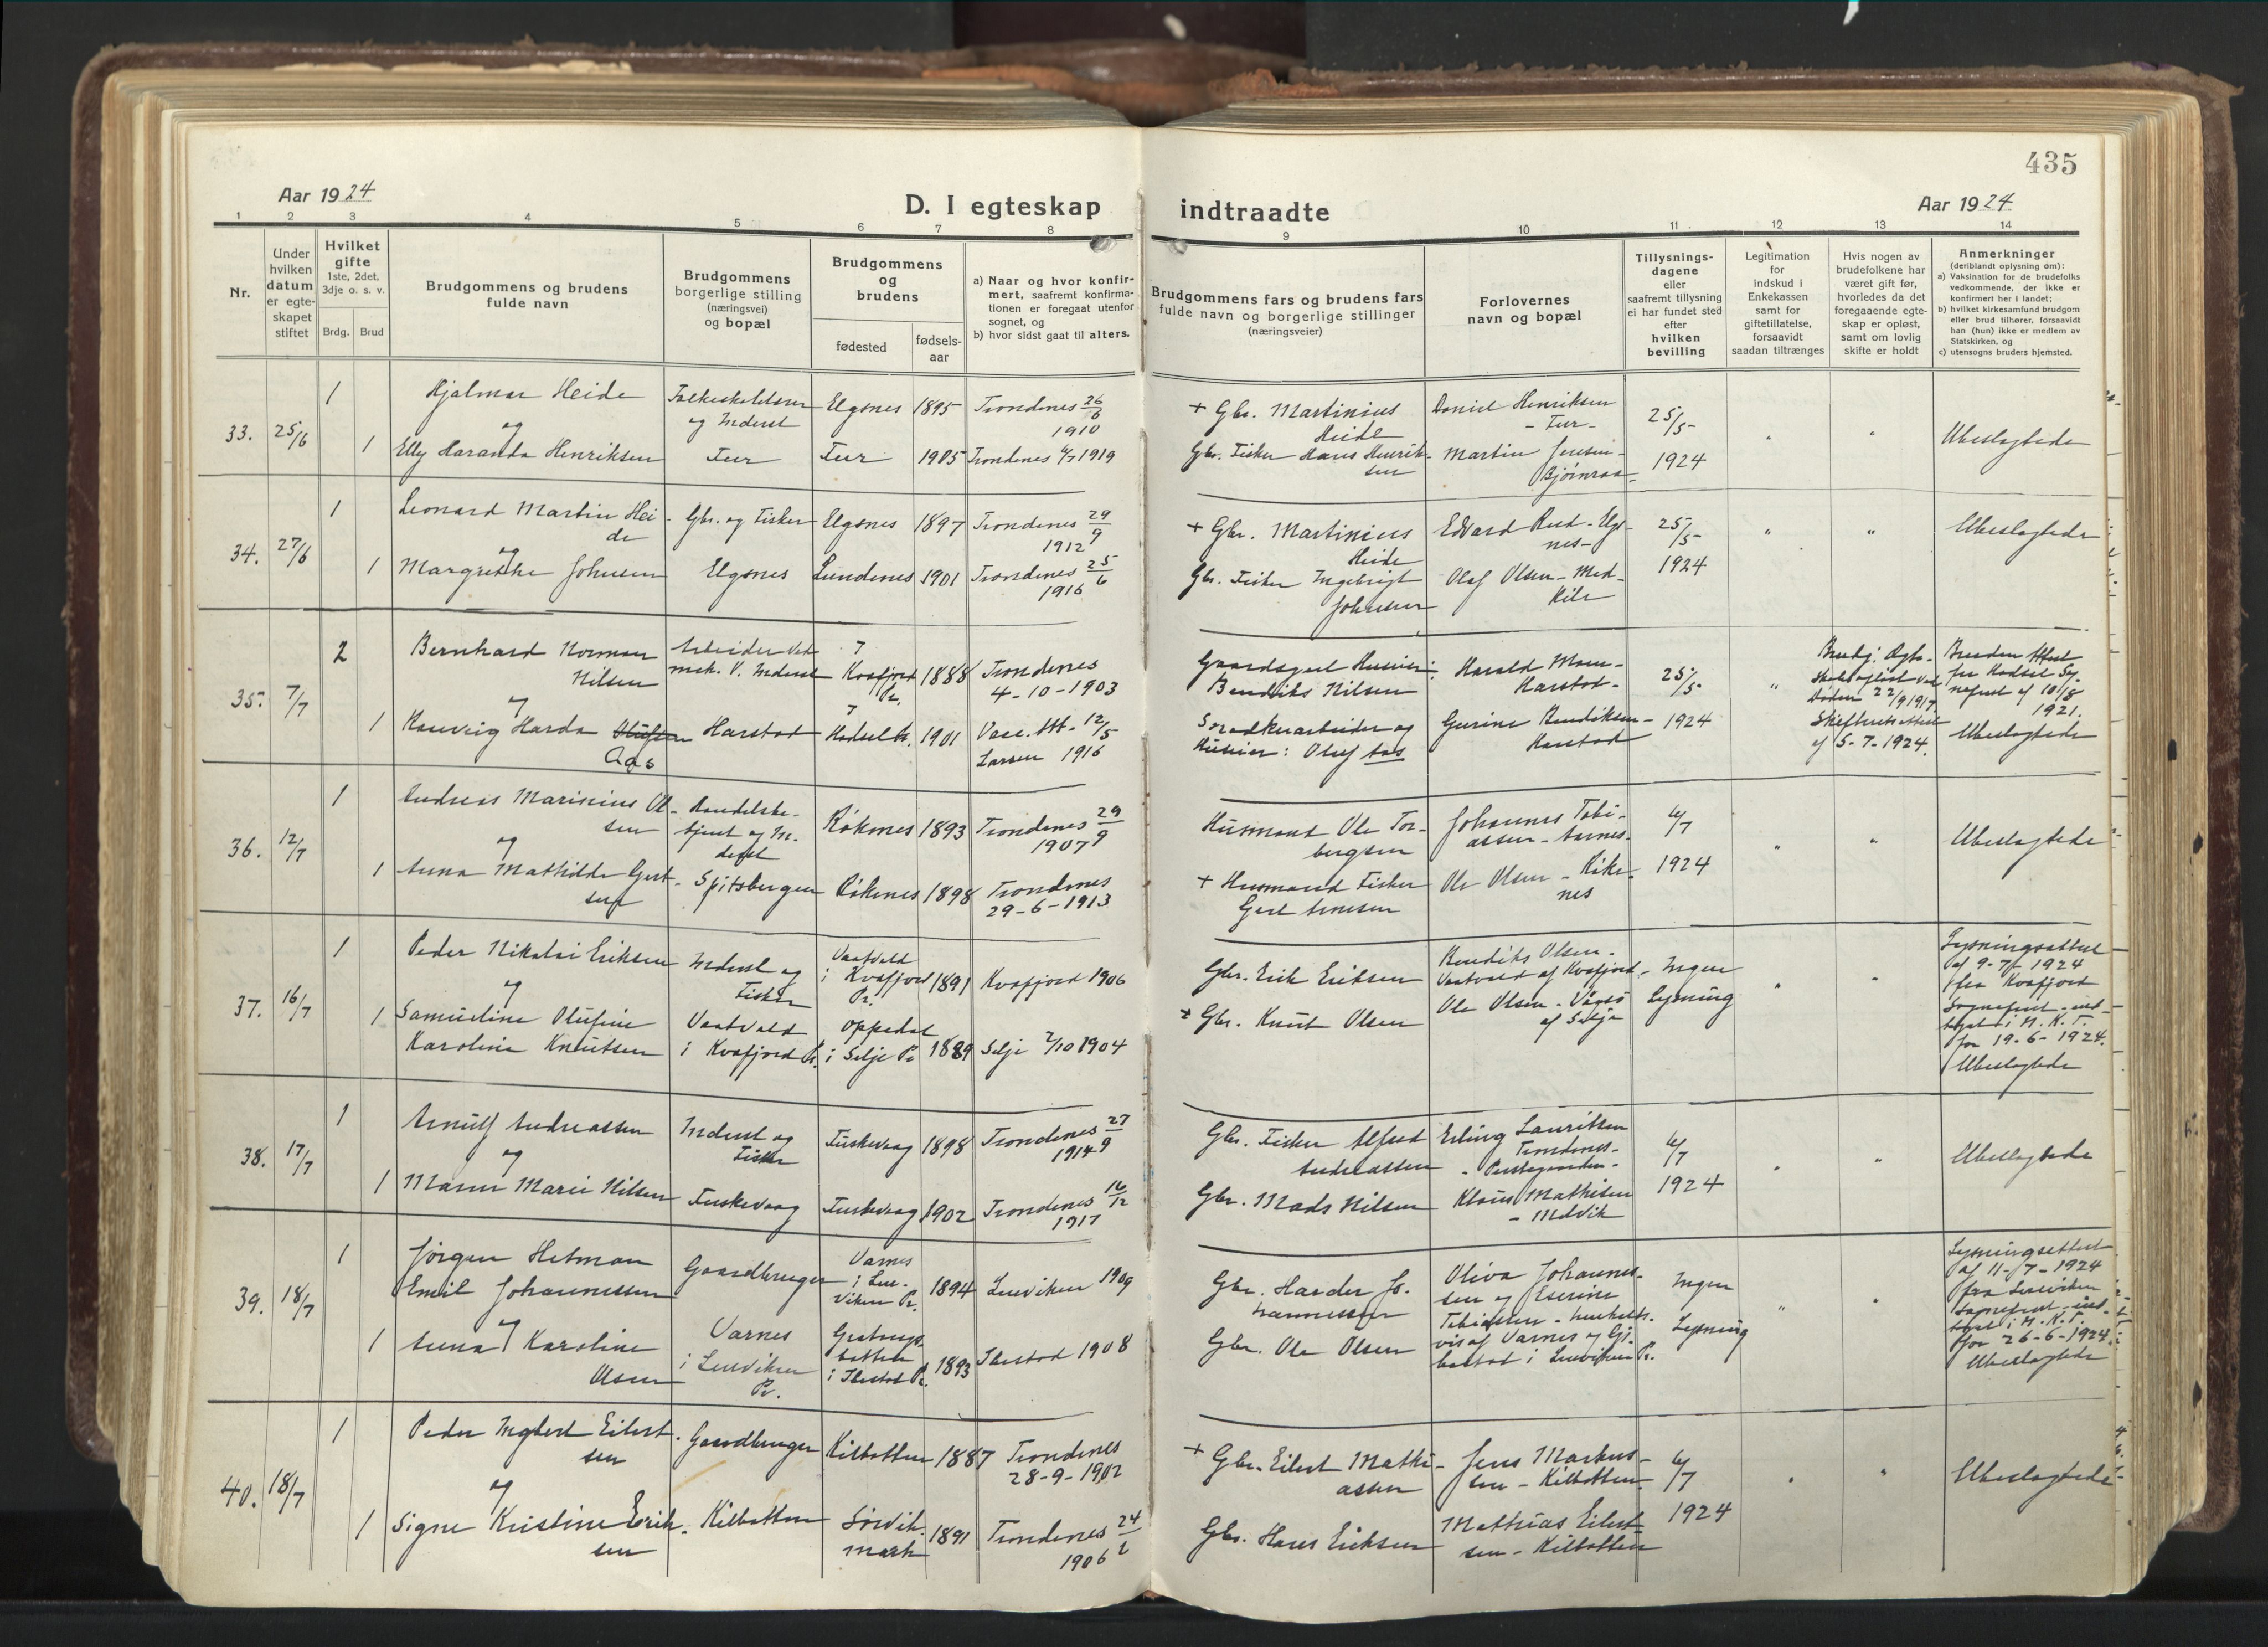 435
Aar 1924
D. I egteskap
indtraadte
Aar 1924
1 2 3 4 5 6 7 8 9 10 11 12 13 14
Nr.
Under
hvilken
datum
er egte-
skapet
stiftet
Hvilket
gifte
1ste, 2det,
3dje o. s. v.
Brdg. Brud
Brudgommens og brudens
fulde navn
Brudgommens
borgerlige stilling
(næringsvei)
og bopæl
Brudgommens
og
brudens
fødested
fødsels-
aar
a) Naar og hvor konfir-
mert, saafremt konfirma-
tionen er foregaat utenfor
sognet, og
b) hvor sidst gaat til alters.
Brudgommens fars og brudens fars
fulde navn og borgerlige stillinger
(næringsveier)
Forlovernes
navn og bopæl
Tillysnings-
dagene
eller
saafremt tillysning
ei har fundet sted
efter
hvilken
bevilling
Legitimation
for
indskud i
Enkekassen
samt for
giftetillatelse,
forsaavidt
saadan tiltrænges
Hvis nogen av
brudefolkene har
været gift før,
hvorledes da det
foregaaende egte-
skap er opløst,
samt om lovlig
skifte er holdt
Anmerkninger
(deriblandt oplysning om):
a) Vaksination for de brudefolks
vedkommende, der ikke er
konfirmert her i landet;
b) hvilket kirkesamfund brudgom
eller brud tilhører, forsaavidt
han (hun) ikke er medlem av
Statskirken, og
c) utensogns bruders hjemsted.
33.
25/6
1
Hjalmar Heide
og
1
Elly Haranda Henriksen
og Inderst
Elgsnes 1895 Trondenes 26/6
1910
1905 Trondenes 6/7 1919
+ Gbr. Martinius
Heide
Gbr. Fisker Hans Henrik-
sen
Daniel Henriksen
Martin Jensen -
Bjørnraa
25/5-
1924
"
"
Ubeslegtede
34.
27/6
1
Leonard Martin Hei-
de
og
1
Margrethe Johnsen
Gbr. og Fisker
Elgsnes
Elgsnes 1897 Trondenes 29/9
1912
Lundenes 1901 Trondenes 25/6
1916
+ Gbr. Martinius
Heide
Gbr. Fisker Ingebrigt
Johnsen
Edvard Rud - Elgs-
nes-
Olaf Olsen - Med-
kile
25/5-
1924
"
"
Ubeslegtede
35.
7/7
2
Bernhard Norman
Nilsen
og
1
Harda
Aas
Arbeider ved
mek. V. Inderst
Harstad
i
Kvæfjord
Pr.
1888 Trondenes
4-10-1903
i
1901
12/5
Larsen 1916
Bendiks Nilsen
Oluf Aas
Harald
Harstad-
Gurine Bendiksen-
Harstad
25/5
1924
"
Døden 22/9 1917
Skifteretsattest
af 5-7-1924.
Bruden
fra Hadsel So-
1921.
Ubeslegtede
36.
12/7
1
Andreas Marinius Ol-
sen
og
1
Anna Mathilde Gert-
sen
Handelsbe-
tjent og In-
derst
Spitsbergen
Røkenes 1893 Trondenes 29/9
1907
Røkenes 1898 Trondenes
29-6-1913
Husmand Ole Tor-
bergsen
+ Husmand Fisker
Gert Arnesen
Johannes Tobi-
assen - Aarnes-
Ole Olsen - Røke-
nes
6/7
1924
"
"
Ubeslegtede
37.
16/7
1
Peder Nikolai Eriksen
og
1
Samueline Olufine
Karoline Knutsen
Inderst og
Fisker
i Kvæfjord Pr.
i Kvæfjord
Pr.
1891 Kvæfjord 1906
Oppedal
i Selje Pr. 1889 Selje 2/10 1904
Gbr. Erik Eriksen
+ Gbr. Knut Olsen
Bendiks Olsen -
af Kvæfjord -
Ole Olsen - Vågsø
af Selje
Ingen
Lysning
"
"
Lysningsattest
af 9-7-1924
fra Kvæfjord
Sogneprest - ind-
taget i N. K. T.
for 19-6-1924.
Ubeslegtede
38.
17/7
1
Arnulf Andreassen
og
1
Marie Nilsen
Inderst og
Fisker
Fuskevaag
Fuskevaag 1898 Trondenes 27/9
1914
Fuskevaag 1902 Trondenes 16/12
1917
Gbr. Fisker Alfred
Andreassen
Gbr. Mads Nilsen
Erling Lauritsen
Trondenes-
- Prestegaarden-
Klaus Mathisen
- Melvik
6/7
1924
"
"
Ubeslegtede
39.
18/7
1
Jørgen Hetman
Emil Johannessen
og
1
Anna Karoline
Olsen
Gaardbruger
Varnes
i Lenviken
Pr.
Varnes
i Len-
viken Pr.
1894 Lenviken 1909
botten
i Ibestad Pr.
1893 Ibestad 1908
Gbr. Harder Jo-
hannessen
Gbr. Ole Olsen
Oliva Johannes-
sen og
Tobiassen - henholds-
vis af Varnes og Gi-
bostad i Lenviken Pr.
Ingen
Lysning
"
"
Lysningsattest
af 11-7-1924
fra Lenviken
Sogneprest - ind-
taget i N. K. T.
for 26-6-1924.
Ubeslegtede
40.
18/7
1
Peder Ingbert Eilert-
sen
og
1
Signe Kristine Erik-
sen
Gaardbruger
Kilbotten
Kilbotten 1887 Trondenes
28-9-1902
Sørvik-
mark
1891 Trondenes 24/6
1906
+ Gbr. Eilert Mathi-
assen
Gbr. Hans Eriksen
Jens Markus-
sen - Kilbotten
Mathias Eilert-
sen - Kilbotten
6/7
1924
"
"
Ubeslegtede